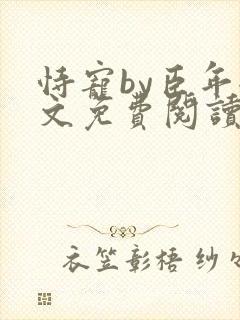 恃寵by臣年
文免費閱讀
衣笠彰梧 紗